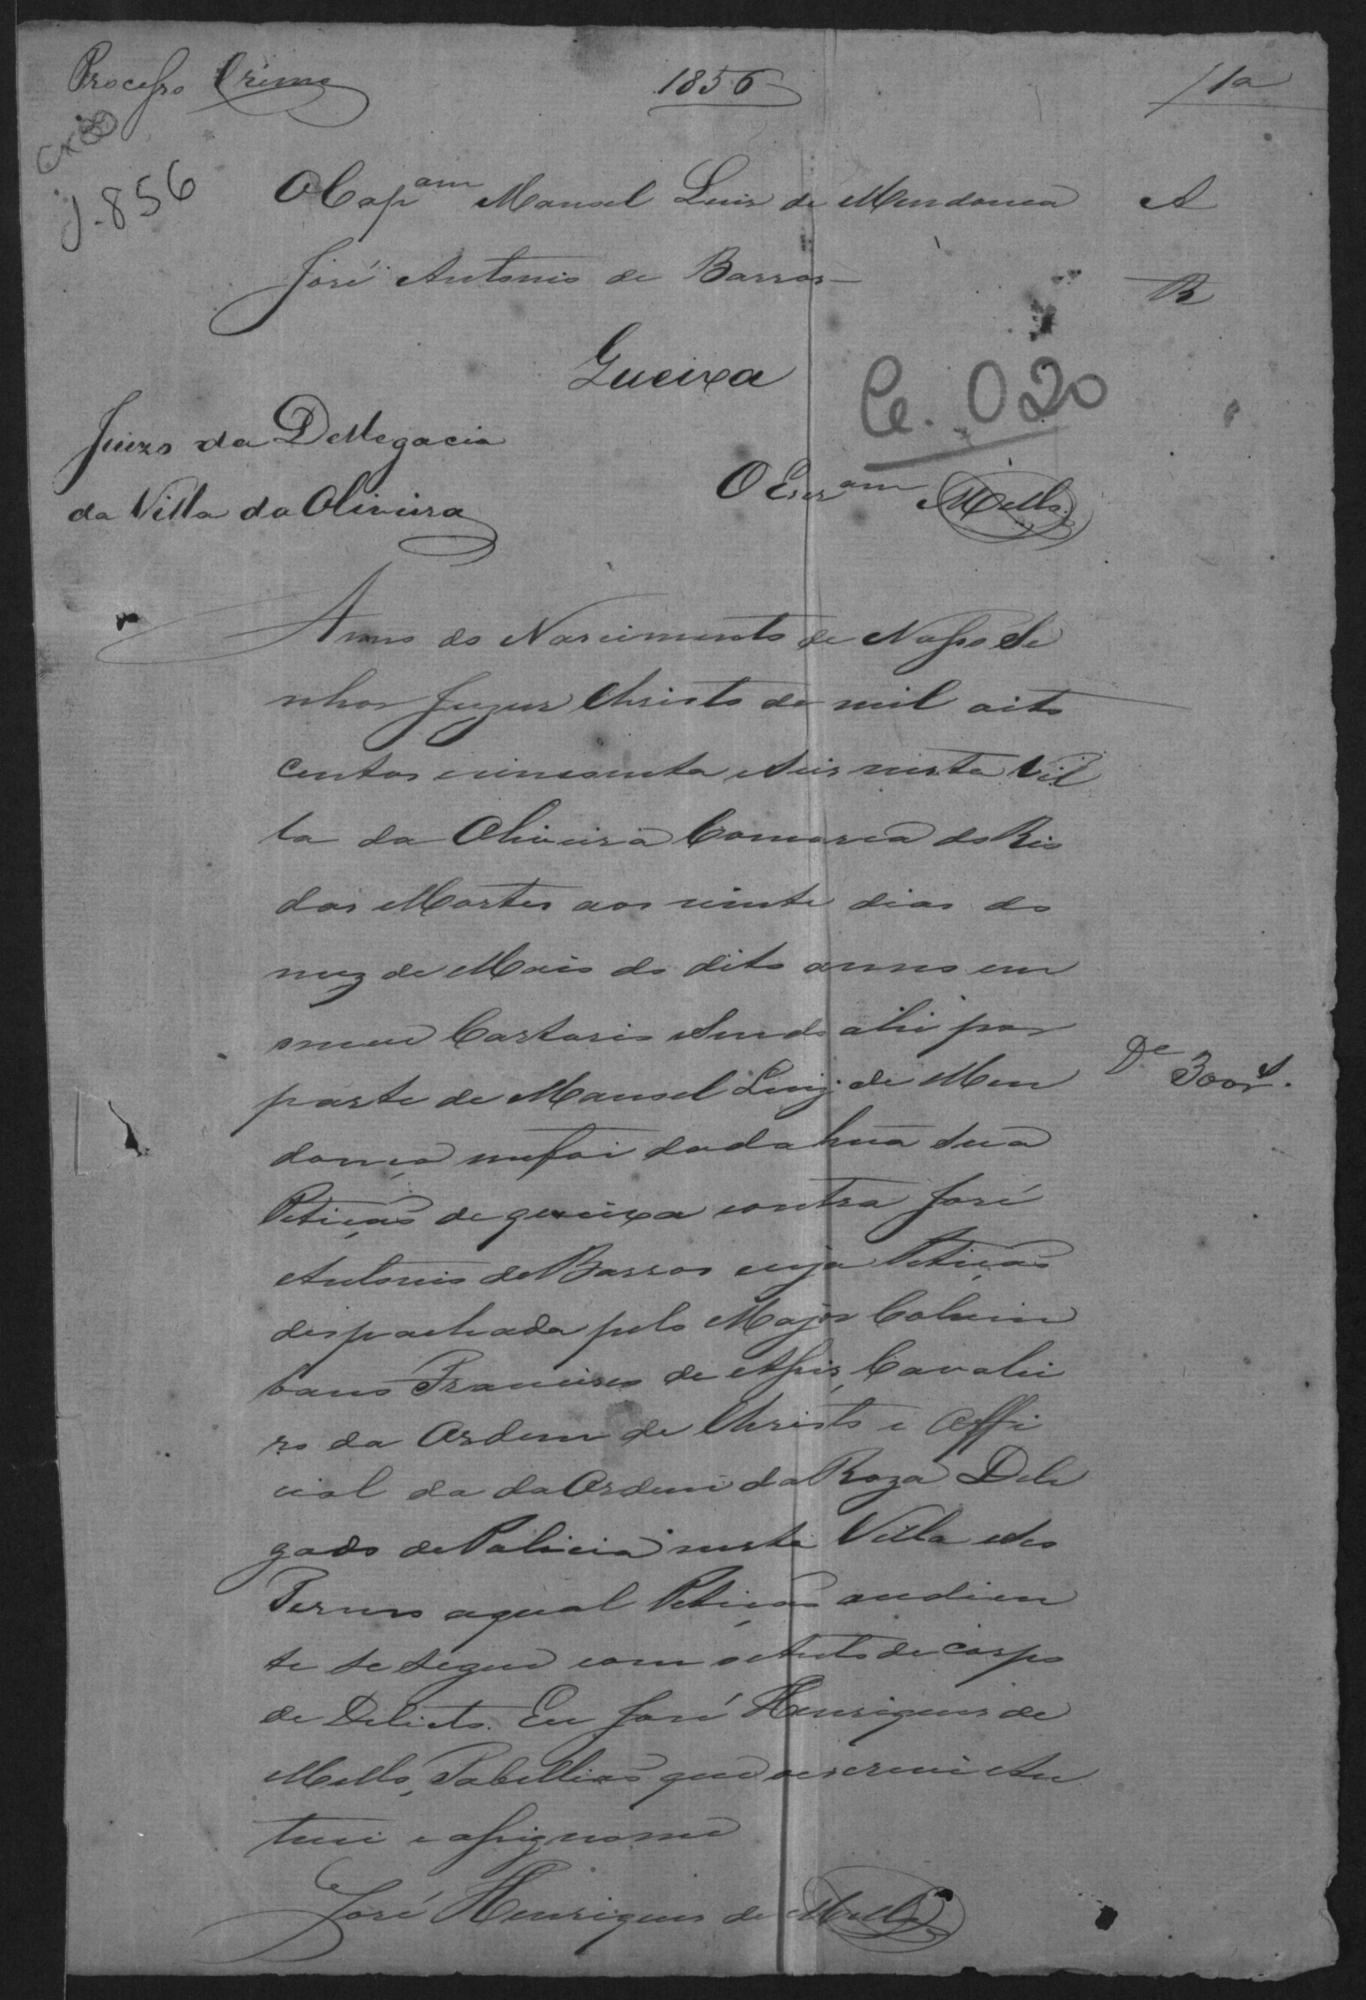 Processo Crime
1856
1a
Cx 20
J-856
O Cap.am Manoel Luis de Mendonca A
José Antonio de Barros R
Queixa
Ce. 020
Juizo da Dellegacia
da Villa da Oliveira
O Escr.am Mello
Anno do Nascimento de Nosso Se
nhor Jezus Christo de mil oito
centos cincoenta e seis nesta Vil
la da Oliveira Comarca do Rio
das Mortes aos vinte dias do
mez de Maio do dito anno em
meu Cartorio e sendo ahi por
parte de Manoel Luiz de Men
donça me foi dada hua sua
Petição de queixa contra José
Antonio de Barros cuja Petição
despachada pelo Major Colum
bano Francisco de Assis, Cavalei
ro da Ordem de Christo e Offi
cial da da Ordem da Roza Dele
gado de Policia nesta Villa e seo
Termo a qual Petição ao dian
te se segue com o Auto de corpo
de Delicto. Eu José Henriques de
Mello, Tabellião que o escrevi Au
tuei e assignome
José Henriques de Mello
De 300 rs.